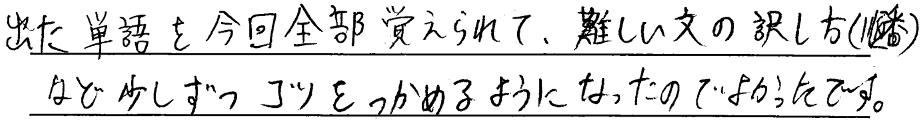 出た単語を今回全部覚えられて、難しい文の訳し方(順番)
など少しずつコツをつかめるようになったのでよかったです。